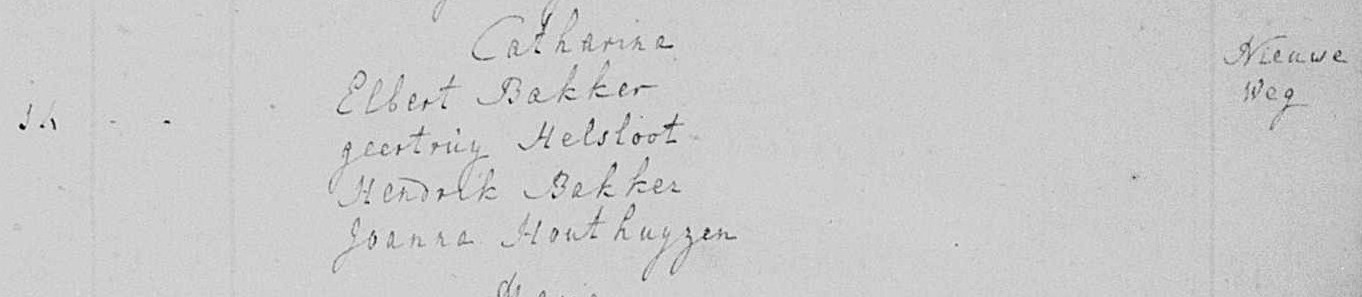 Catharina
Elbert Bakker
geertruy Helsloot
Hendrik Bakker
Joanna Houthuyzen
Nieuwe
Weg